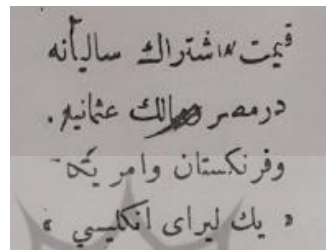 قيمت اشتراك ساليانه
درمصر وممالك عثمانيه.
وفرنكستان وامريكه
« يك ليراى انكليسي »